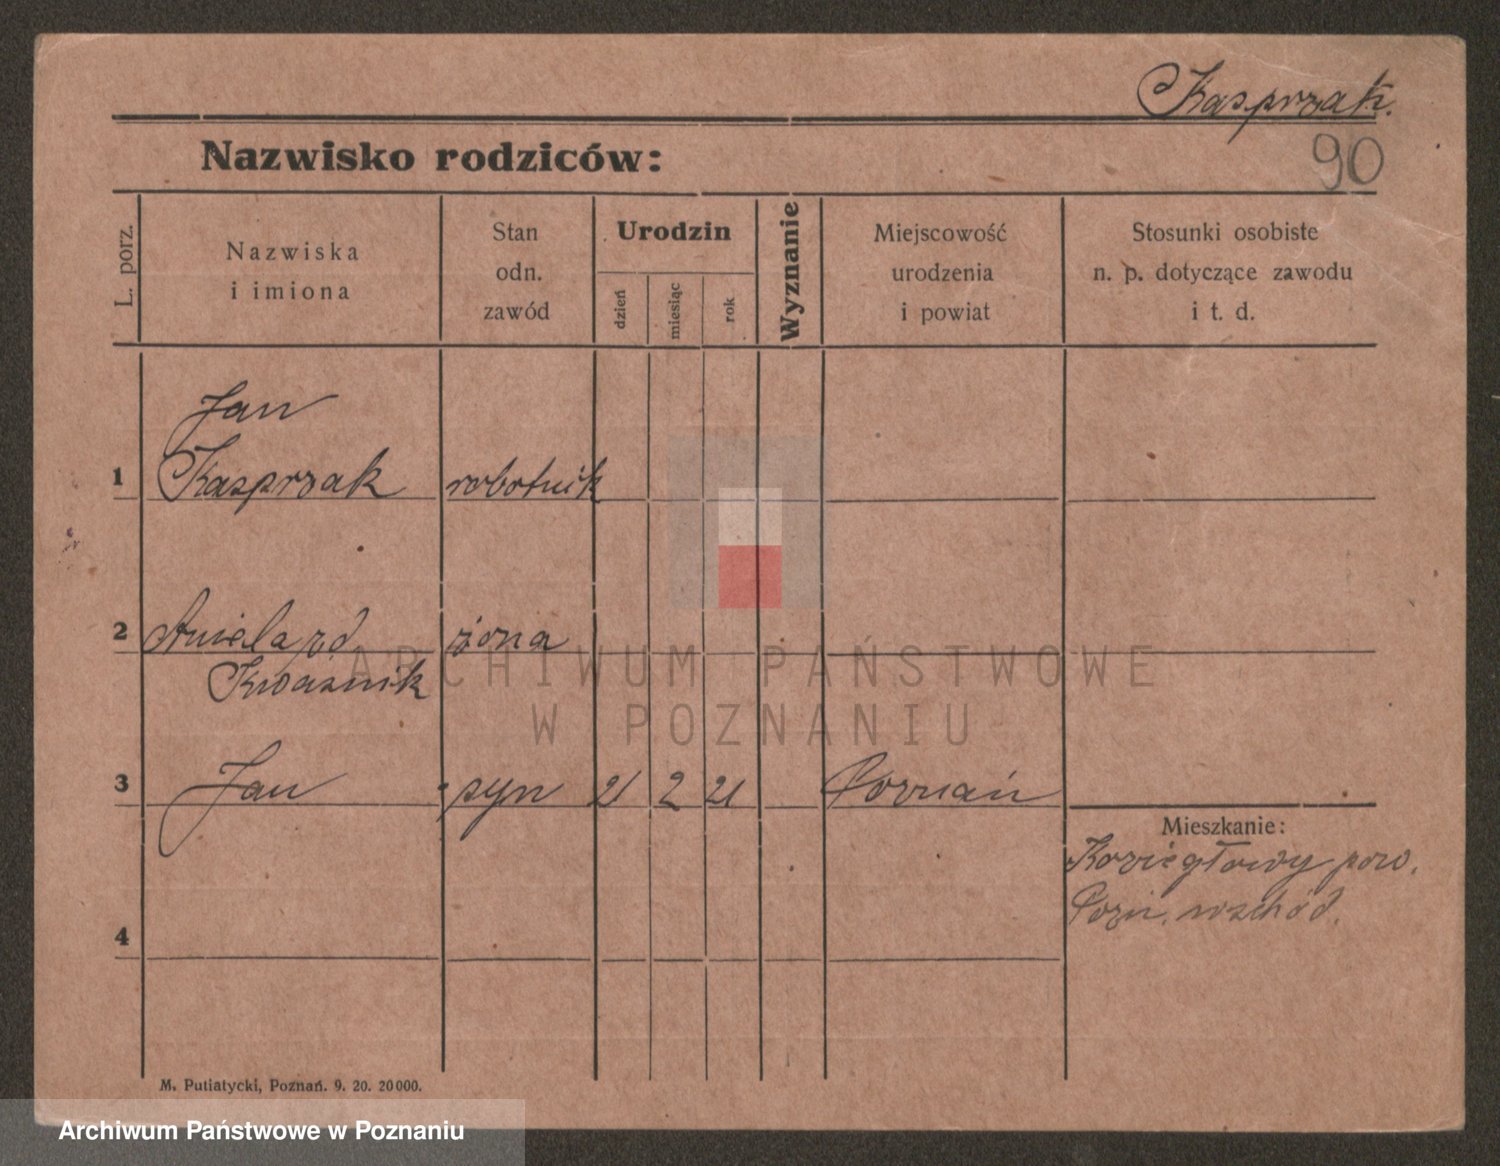 Kasprzak.
90
Nazwisko rodziców:
L. porz.
Nazwiska
i imiona
Stan
odn.
zawód
Urodzin
dzień
miesiąc
rok
Wyznanie
Miejscowość
urodzenia
i powiat
Stosunki osobiste
n. p. dotyczące zawodu
i t. d.
Jan
1 Kasprzak robotnik
2 Aniela zd żona
Kwaśnik
3 Jan syn 21 2 21 Poznań
Mieszkanie:
Koziegłowy pow.
Pozn. wschód.
4
M. Putiatycki, Poznań. 9. 20. 20000.
ARCHIWUM PAŃSTWOWE
W POZNANIU
Archiwum Państwowe w Poznaniu